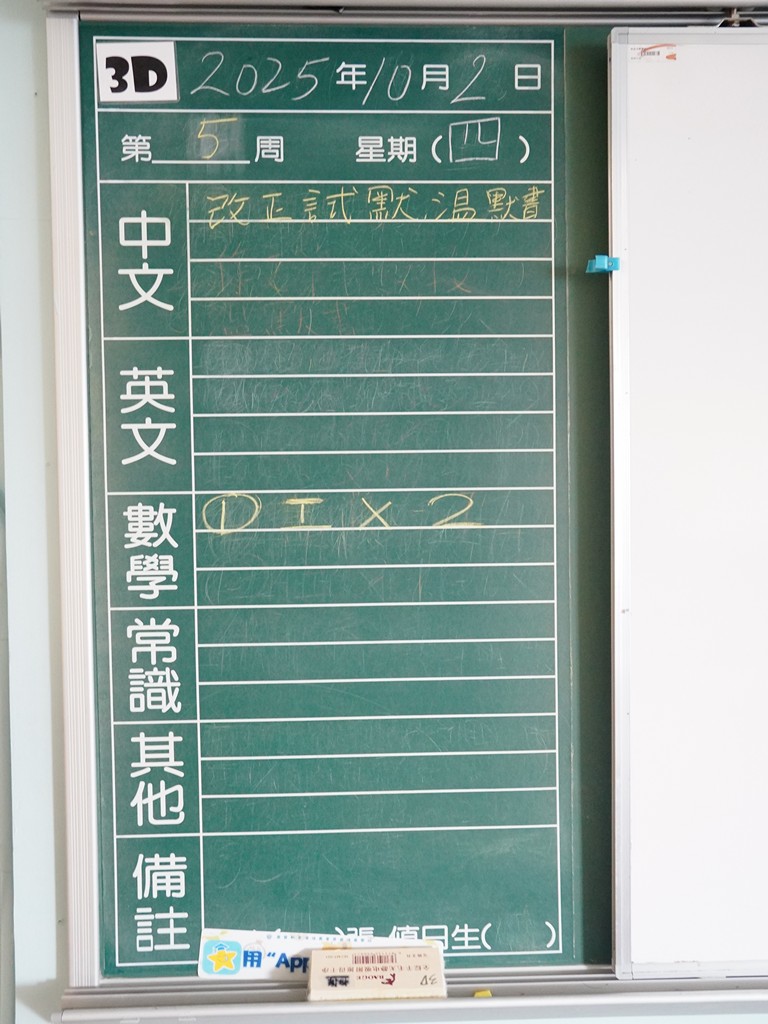 3D 2025年10月2日
第5周 星期(四)
中文 改正試默.溫默書
英文
數學 ①工×2
常識
其他
備註
張 值日生( )
用 "App
3D